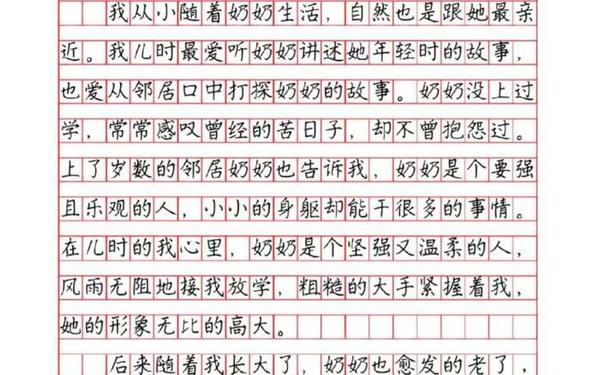 我从小随着奶奶生活，自然也是跟她最亲
近。我儿时最爱听奶奶讲述她年轻时的故事，
也爱从邻居口中打探奶奶的故事。奶奶没上过
学，常常感叹曾经的苦日子，却不曾抱怨过。
上了岁数的邻居奶奶也告诉我，奶奶是个要强
且乐观的人，小小的身躯却能干很多的事情。
在儿时的我心里，奶奶是个坚强又温柔的人，
风雨无阻地接我放学，粗糙的大手紧握着我，
她的形象无比的高大。
后来随着我长大了，奶奶也愈发的老了，